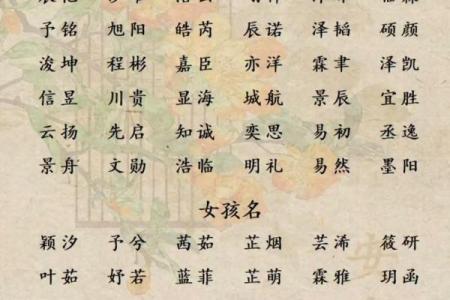 予铭 旭阳 皓芮 辰诺 泽韬 硕颜
浚坤 程彬 嘉臣 亦洋 霖聿 泽凯
信昱 川贵 显海 城航 景辰 宜胜
云扬 先启 知诚 奕思 易初 丞逸
景舟 文勋 浩临 明礼 易然 墨阳
女孩名
颖汐 予兮 茜茹 芷烟 芸浠 筱研
叶茹 妤若 蓝菲 芷萌 霖雅 玥函